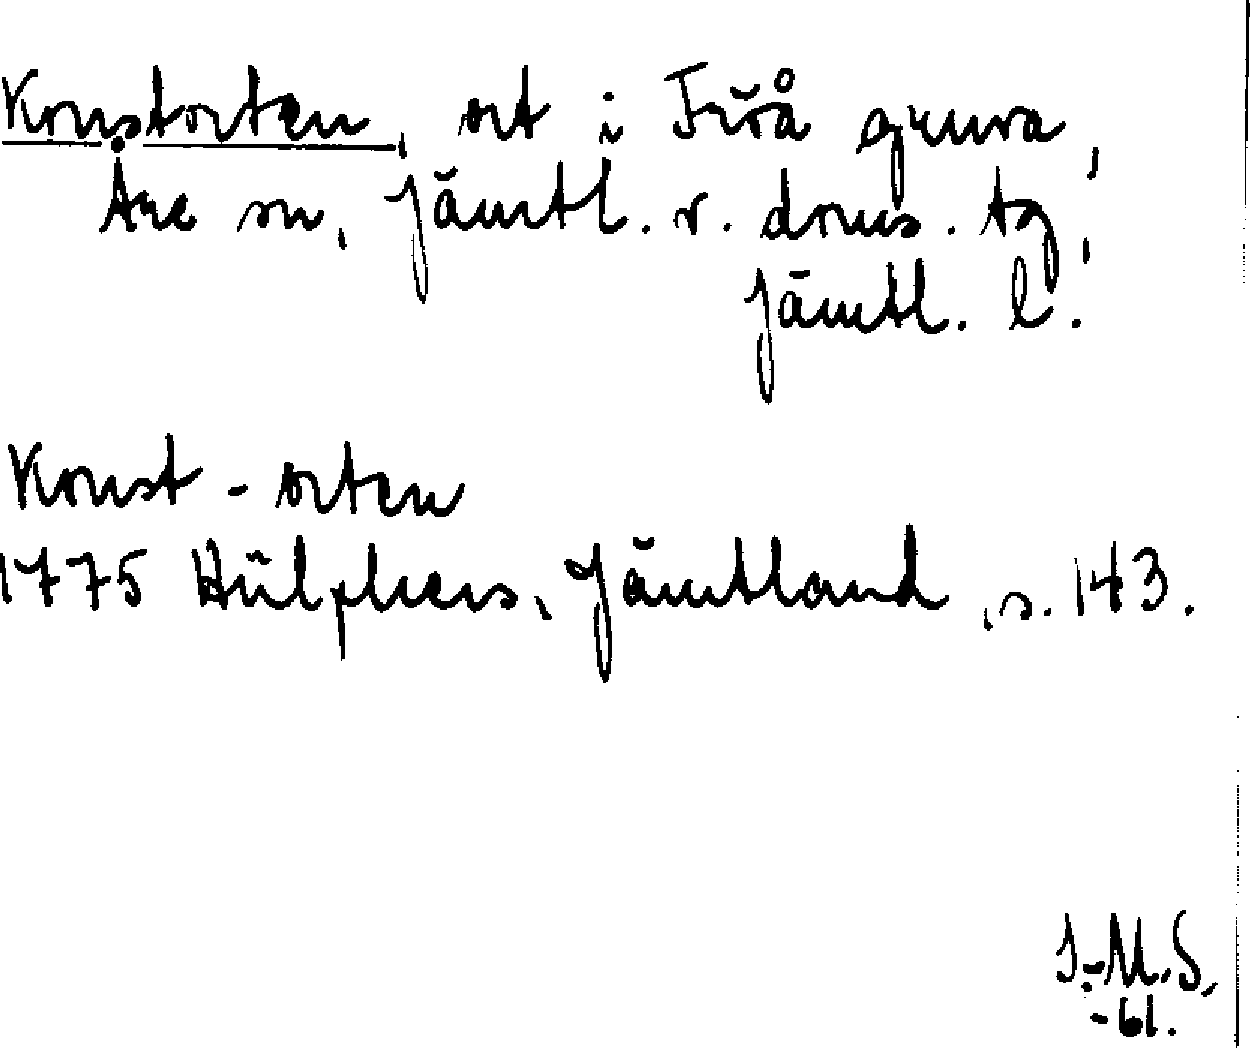 Konstorten, ort i Fröå gruva,
Åre sn, Jämtl. v. doms. tg,
Jämtl. l.
Konst-orten
1775 Hülphers, Jämtland, s. 143.
I.-M.S.
-61.